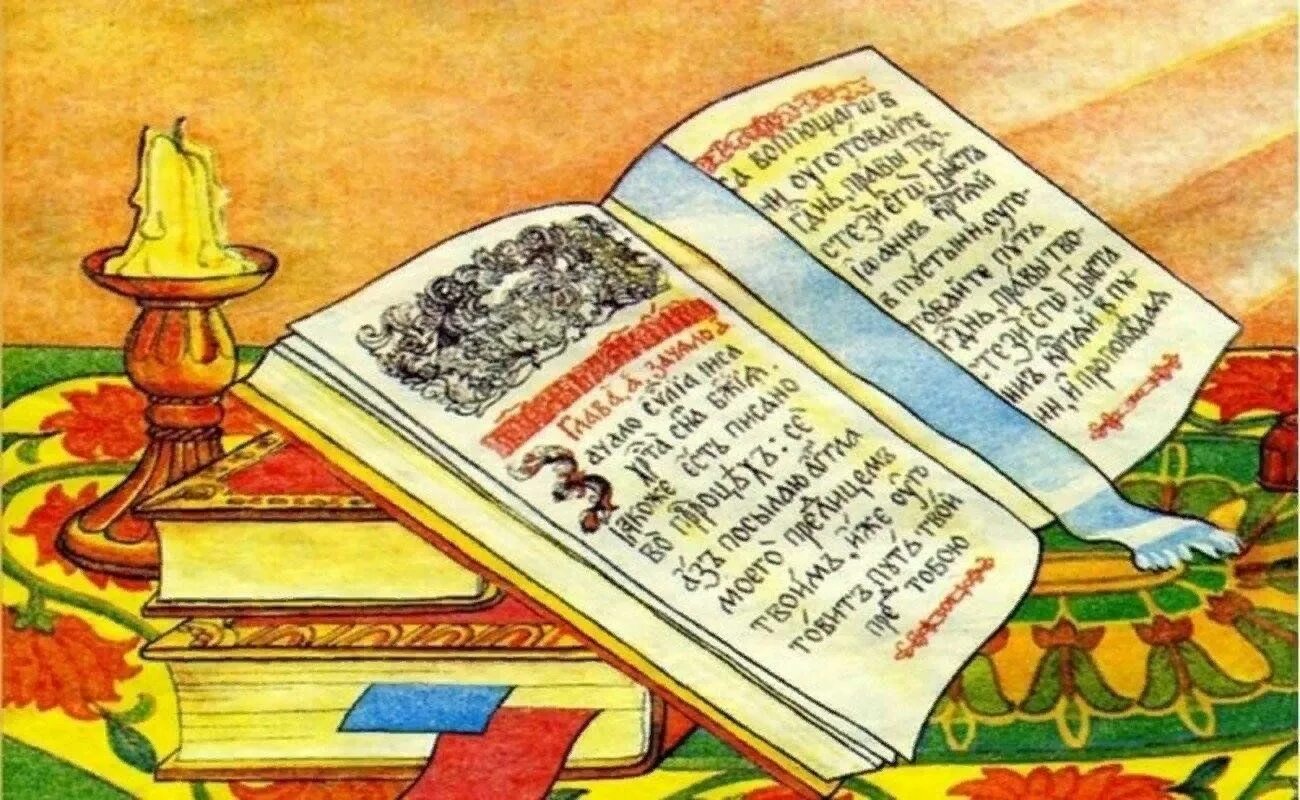 Глава, а҃, зачало, а҃
Зачало еѵⷢ҇лїа їиса
хрⷭ҇та сн҃а бж҃їѧ.
Ꙗкоже есть писано
во прⷪ҇роцѣхъ: се
а҆зъ посылаю а҆гг҃ла
моегѡ̀ пред̾ лицемъ
твои́мъ, и҆́же ᲂу҆гото-
то́витъ пꙋ́ть тво́й
пред̾ тобою
са вопїющагѡ в
ни, ᲂу҆гото́вайте
гдⷭ҇нь, правы тво-
стези̑ егѡ̀. Бы́ста
їѡаннъ крⷭ҇тѧ́й
в пꙋстыни, ᲂу҆го-
то́вайте пꙋть
гдⷭ҇нь, правы тво-
стези̑ егѡ̀. Бы́ста
ннъ крⷭ҇тѧ́й в пꙋ-
ни, и҆ проповѣдаѧ